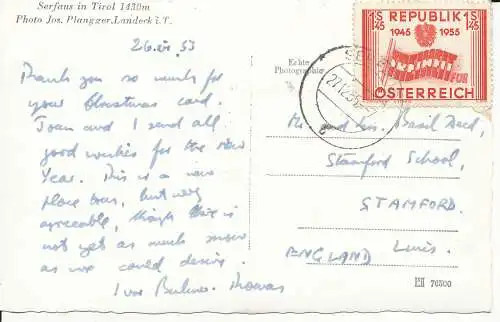 Serfaus in Tirol 1430m
Photo Jos. Plangger, Landeck i.T.
Echte
Photographie
Thank you so much for
your Christmas card.
Joan and I send all
good wishes for the New
Year. This is a new
place to us, but very
agreeable, though there is
not yet as much snow
as we could desire.
Ivor Bulmer-Thomas
1S 45 REPUBLIK 1S 45
1945 1955
FÜR
ÖSTERREICH
Mr and Mrs. Basil
Stamford School,
STAMFORD.
Lincs.
ENGLAND
76500